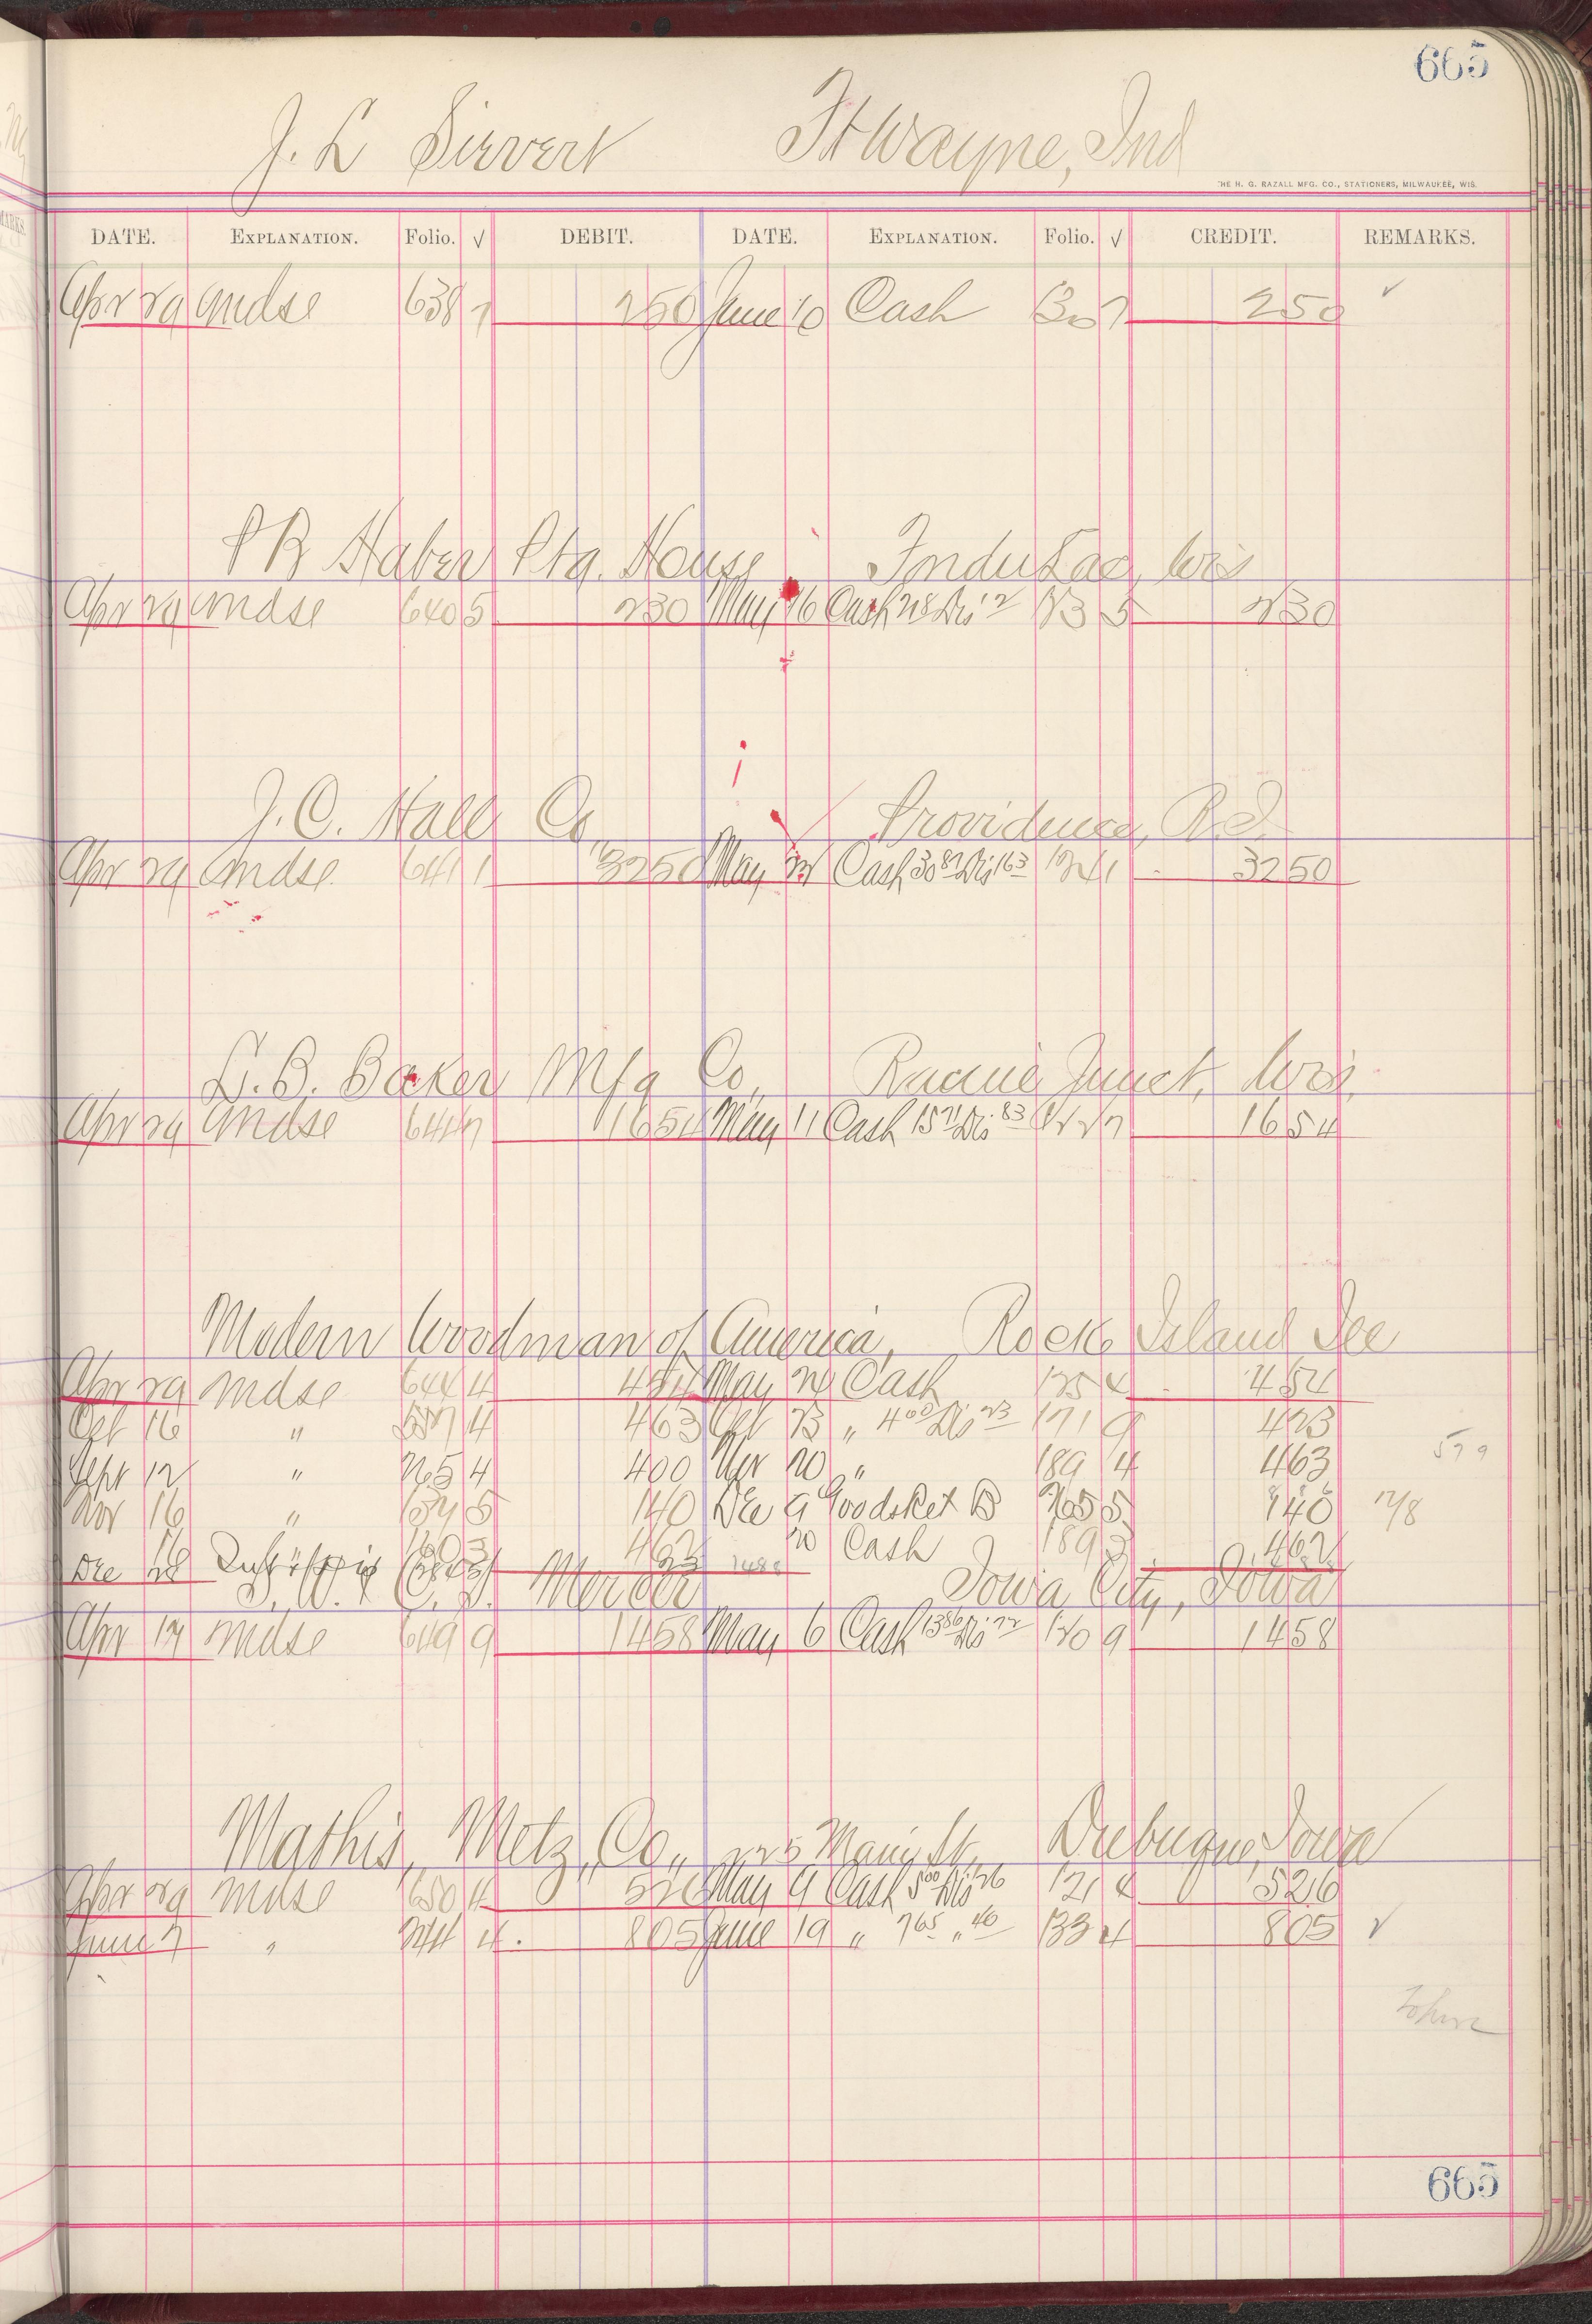 665
J. L Sievert Ft Wayne, Ind
THE H. G. RAZALL MFG. CO., STATIONERS, MILWAUKEE, WIS.
DATE. EXPLANATION. Folio. √ DEBIT. DATE. EXPLANATION. Folio. √ CREDIT. REMARKS.
Apr 29 Mdse 638 7 250 June 10 Cash 130 7 250 ✓
P B Haber Ptg. House Fondu Lac, Wis
Apr 29 Mdse 640 5 230 May 16 Cash 218 Dis 12 123 5 230
J. C. Hall Co., Providence, R.I.
Apr 29 Mdse 641 1 3250 May 24 Cash 30 87 Dis 1 63 124 1 3250
L. B. Baker Mfg Co, Racine Junct, Wis,
Apr 29 Mdse 644 7 1654 May 11 Cash 15 71 Dis 83 122 7 1654
Modern Woodman of America, Rock Island Ill
Apr 29 Mdse 644 4 454 May 24 Cash 125 4 454
Oct 16 " 4 463 Oct 23 " 4 00 Dis 23 171 9 423
Sept 12 " 765 4 400 20 " 189 4 463
Nov 16 " 5 140 Dec 9 Goods Ret B 765 5 140 12/8
579
16 1803 462 20 Cash 189 3 462
Dec 28 23 1488
J. W. & C. J. Mercer Iowa City, Iowa
Apr 17 Mdse 649 9 1458 May 6 Cash 13 86 Dis 72 120 9 1458
Mathis, Metz, Co., 225 Main St, Dubuque, Iowa
Apr 29 Mdse 650 4 526 May 9 Cash 5 00 Dis 26 121 4 526
June 7 " 744 4 805 June 19 " 7 65 " 40 133 4 805 ✓
665